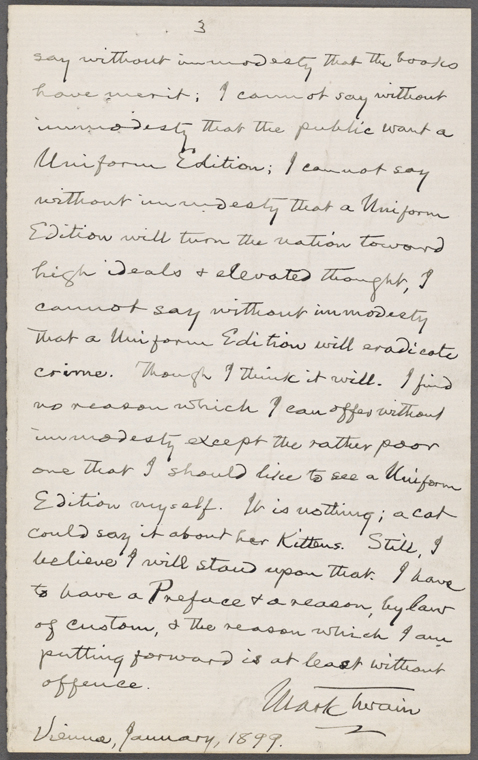 3
say without immodesty that the books
have merit; I cannot say without
immodesty that the public want a
Uniform Edition; I cannot say
without immodesty that a Uniform
Edition will turn the nation toward
high ideals & elevated thought, I
cannot say without immodesty
that a Uniform Edition will eradicate
crime. Though I think it will. I find
no reason which I can offer without
immodesty except the rather poor
one that I should like to see a Uniform
Edition myself. It is nothing; a cat
could say it about her Kittens. Still, I
believe I will stand upon that. I have
to have a Preface & a reason, by law
of custom, & the reason which I am
putting forward is at least without
offence.
Mark Twain
Vienna, January, 1899.